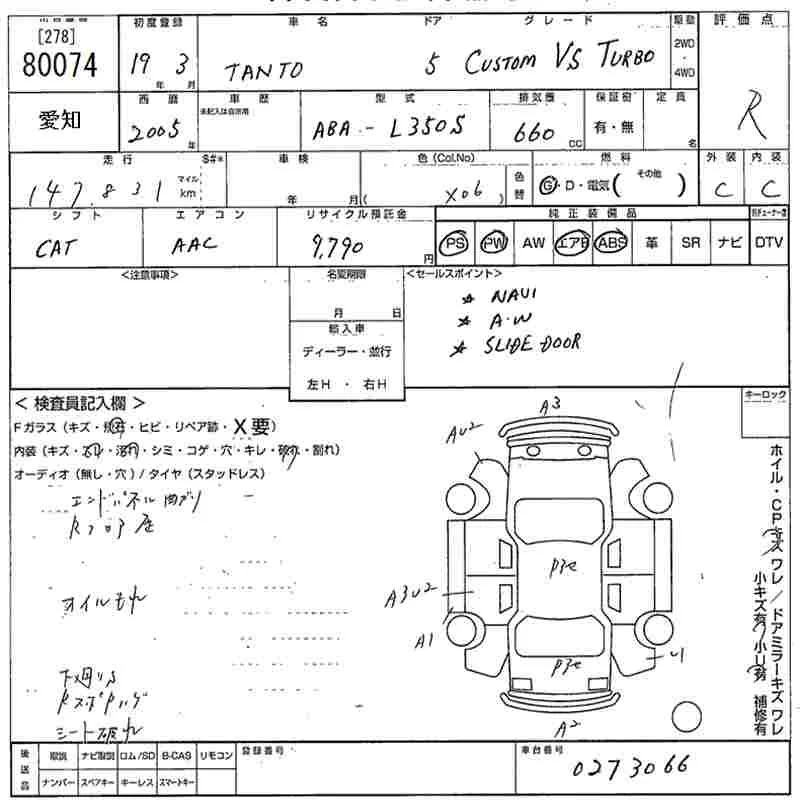 [278]
80074
初度登録
車名
ドア
グレード
駆動
評価点
19年 3月
TANTO
5
CUSTOM VS TURBO
2WD
・
4WD
R
愛知
西暦
車歴
未記入は自家用
型式
排気量
保証書
定員
2005年
ABA-L350S
660 CC
有・無
名
走行
S#*
車検
色(Col,No)
色替
燃料
外装
内装
147,831
マイル
km
年 月
( X06 )
G・D・電気( その他 )
C
C
シフト
エアコン
リサイクル預託金
純正装備品
CAT
AAC
9,790円
PS
PW
AW
エアB
ABS
革
SR
ナビ
DTV
<注意事項>
名変期限
月 日
輸入車
ディーラー・並行
左H・右H
<セールスポイント>
☆ NAVI
☆ A.W
☆ SLIDE DOOR
<検査員記入欄>
キーロック
Fガラス(キズ・飛石・ヒビ・リペア跡・X要)
内装(キズ・・汚れ・シミ・コゲ・穴・キレ・破れ・割れ)
オーディオ(無し・穴)/タイヤ(スタッドレス)
エンドパネル曲がり
オイルもれ
下廻りS
シート破れ
A3
AU2
A3U2
A1
U1
A2
ホイル・CPキズ ワレ/ドアミラーキズ ワレ
小キズ有/小U有 補修有
後送品
取説
ナビ取説
ロム/SD
B-CAS
リモコン
ナンバー
スペアキー
キーレス
スマートキー
登録番号
車台番号
0273066